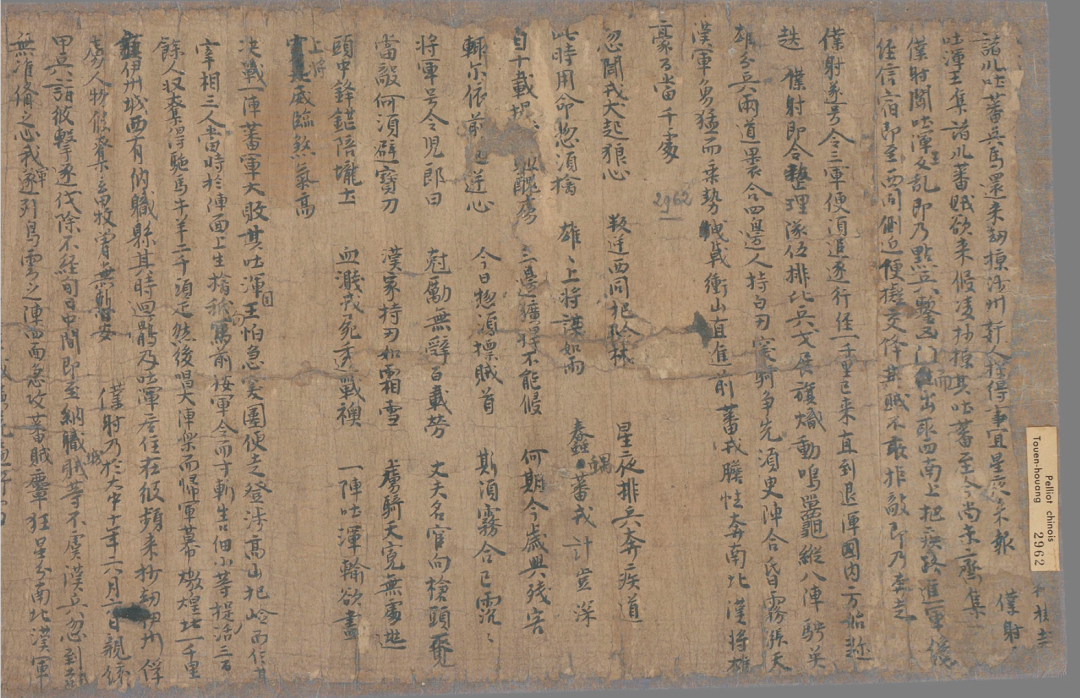 諸川吐蕃兵馬還來劫掠沙州奸人探得事宜星夜來報僕射
吐渾王集諸川蕃賊欲來侵凌抄掠其吐蕃至今尚未齊集
僕射聞吐渾王反亂即乃點兵鏨凶門而出取西南上把疾路進軍纔
經信宿即至西同側近便擬交鋒其賊不敢拒敵即乃奔走
僕射遂号令三軍便須追逐行經一千里已來直到退渾國內方始趂
趃僕射即令整理隊伍排比兵戈展旗幟動鳴鼉縱八陣騁英
雄分兵兩道裹合四邊人持白刃突騎爭先須臾陣合昏霧漲天
漢軍勇猛而乘勢曳戟衝山直進前蕃戎膽怯奔南北漢將雄
豪百當千處
2962
忽聞戎犬起狼心 叛逆西同把嶮林 星夜排兵奔疾道
此時用命惣須擒 雄〻上將謀如雨 蠢愚蕃戎計豈深
自十載提 醜虜 三邊 不能侵 何期今歲興殘害
輒尒依前起逆心 今日惣須摽賊首 斯須霧合已霃〻
將軍号令兒郎曰 尅勵無辭百載勞 丈夫名宦向槍頭覓
當敵何須避寶刀 漢家持刃如霜雪 虜騎天寬無處逃
頭中鋒鋩陪壠土 血濺戎屍透戰襖 一陣吐渾輸欲盡
上將威臨煞氣高
決戰一陣蕃軍大敗其吐渾王怕急突圍便走登涉高山把嶮而住其
宰相三人當時於陣面上生擒秖向馬前按軍令而寸斬生口細小等活捉三百
餘人收奪得駝馬牛羊二千頭疋然後唱大陣樂而歸軍幕燉煌北一千里
鎮伊州城西有納職縣其時迴鶻及吐渾居住在彼頻來抄劫伊州俘
虜人物侵奪畜牧曾無暫安 僕射乃於大中十年六月六日親統
甲兵詣彼擊逐伐除不經旬日中間即至納職城賊等不虞漢兵忽到都
無准備之心我軍遂列烏雲之陣四面急攻蕃賊麞狂星分南北漢軍
Pelliot chinois
Touen-houang
2962